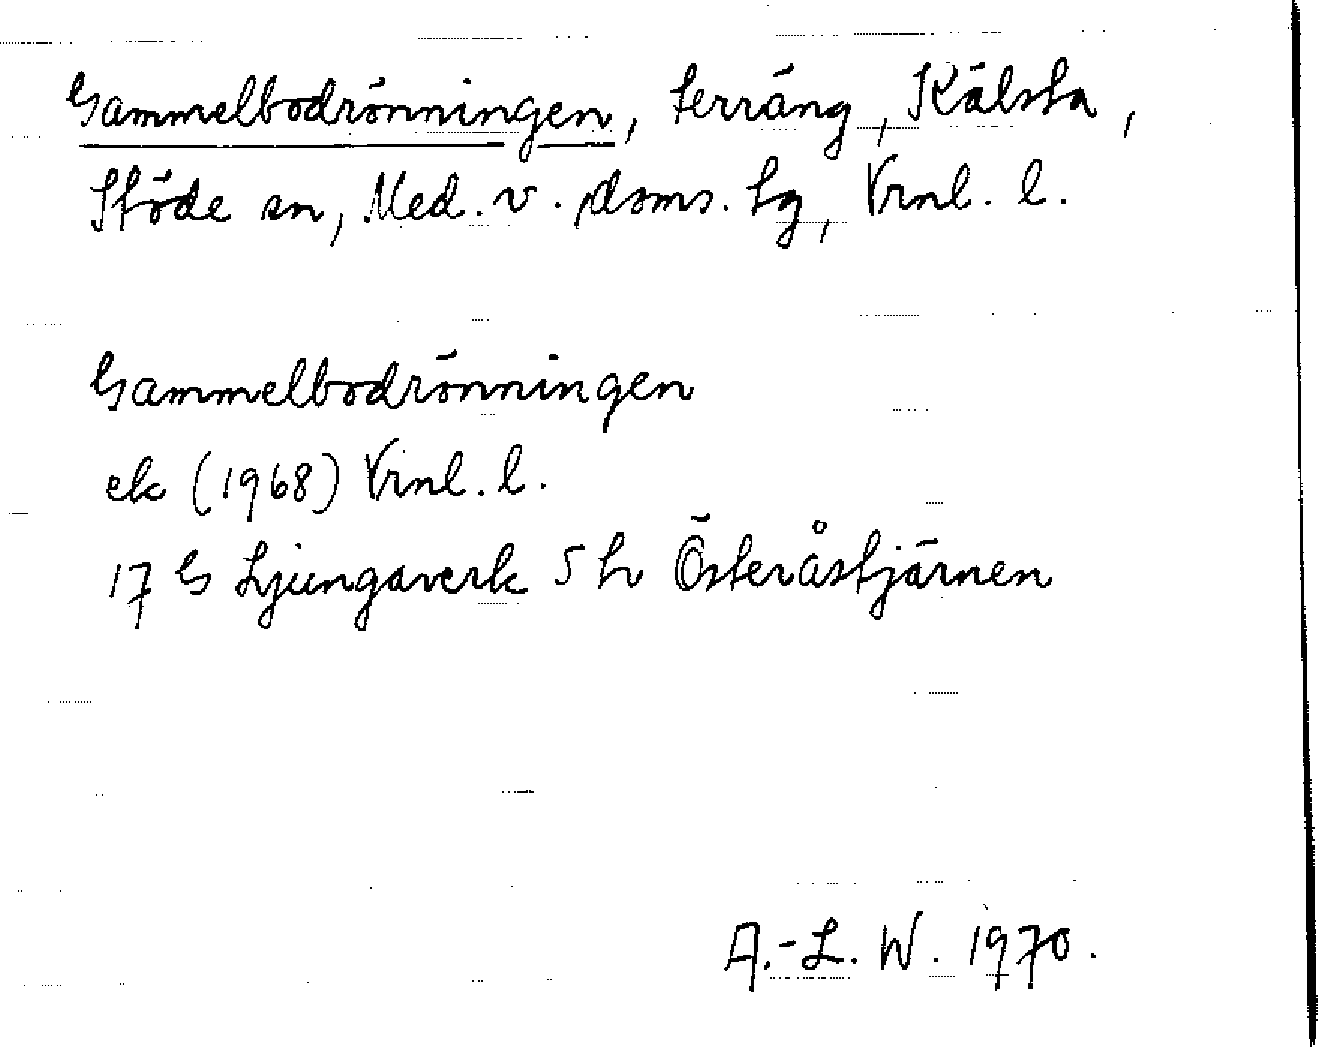 Gammelbodrönningen, terräng, Kälsta,
Stöde sn, Med. v. doms. tg, Vrnl. l.
Gammelbodrönningen
ek (1968) Vrnl. l.
17 G Ljungaverk 5 h Österåstjärnen
A.-L. W. 1970.